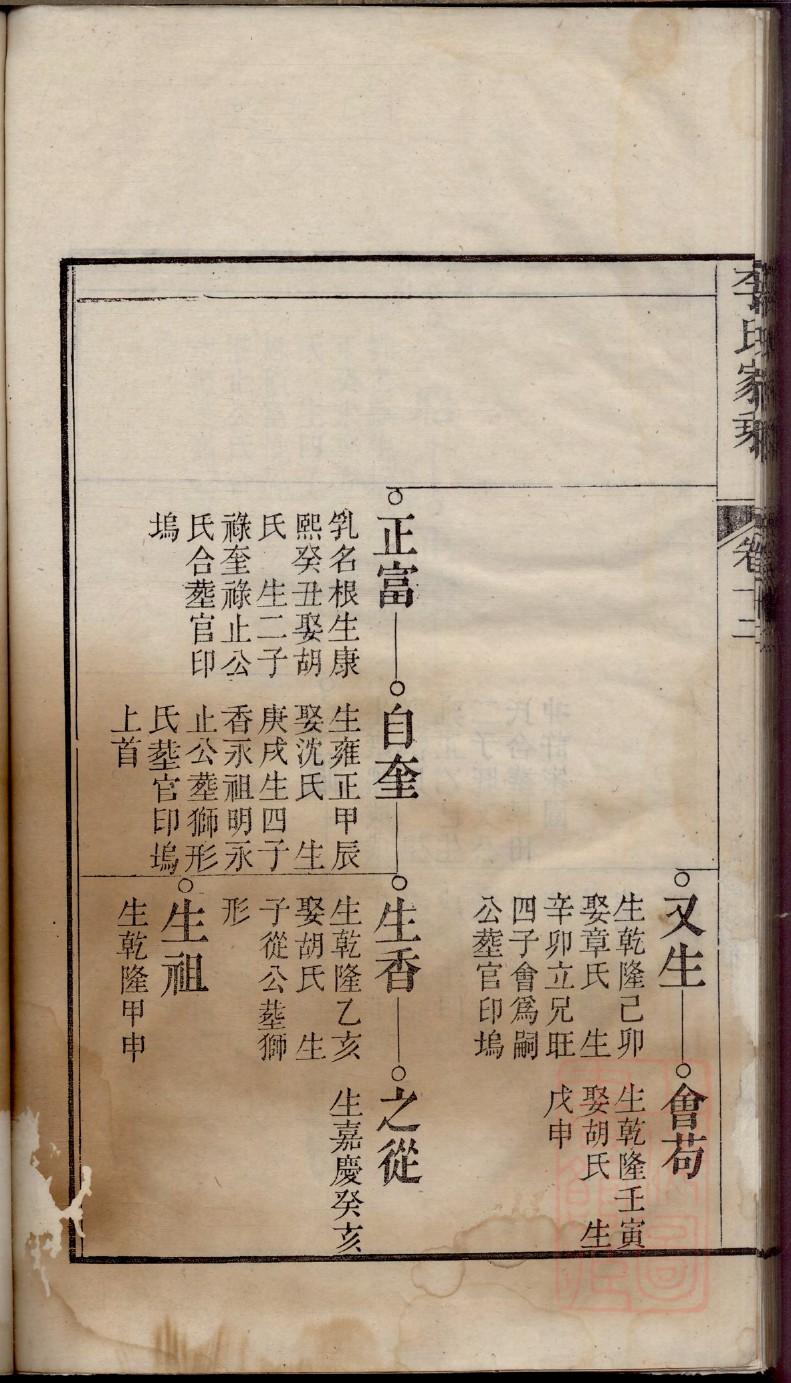 李氏家乘
卷十二
又生
生乾隆己卯
娶章氏　生
辛卯立兄旺
四子會爲嗣
公塟官印塢
會苟
生乾隆壬寅
娶胡氏　生
戊申
正富
乳名根生康
熙癸丑娶胡
氏　生二子
祿奎祿止公
氏合塟官印
塢
自奎
生雍正甲辰
娶沈氏　生
庚戌生四子
香永祖明永
止公塟獅形
氏塟官印塢
上首
生香
生乾隆乙亥
娶胡氏　生
子從公塟獅
形
之從
生嘉慶癸亥
生祖
生乾隆甲申